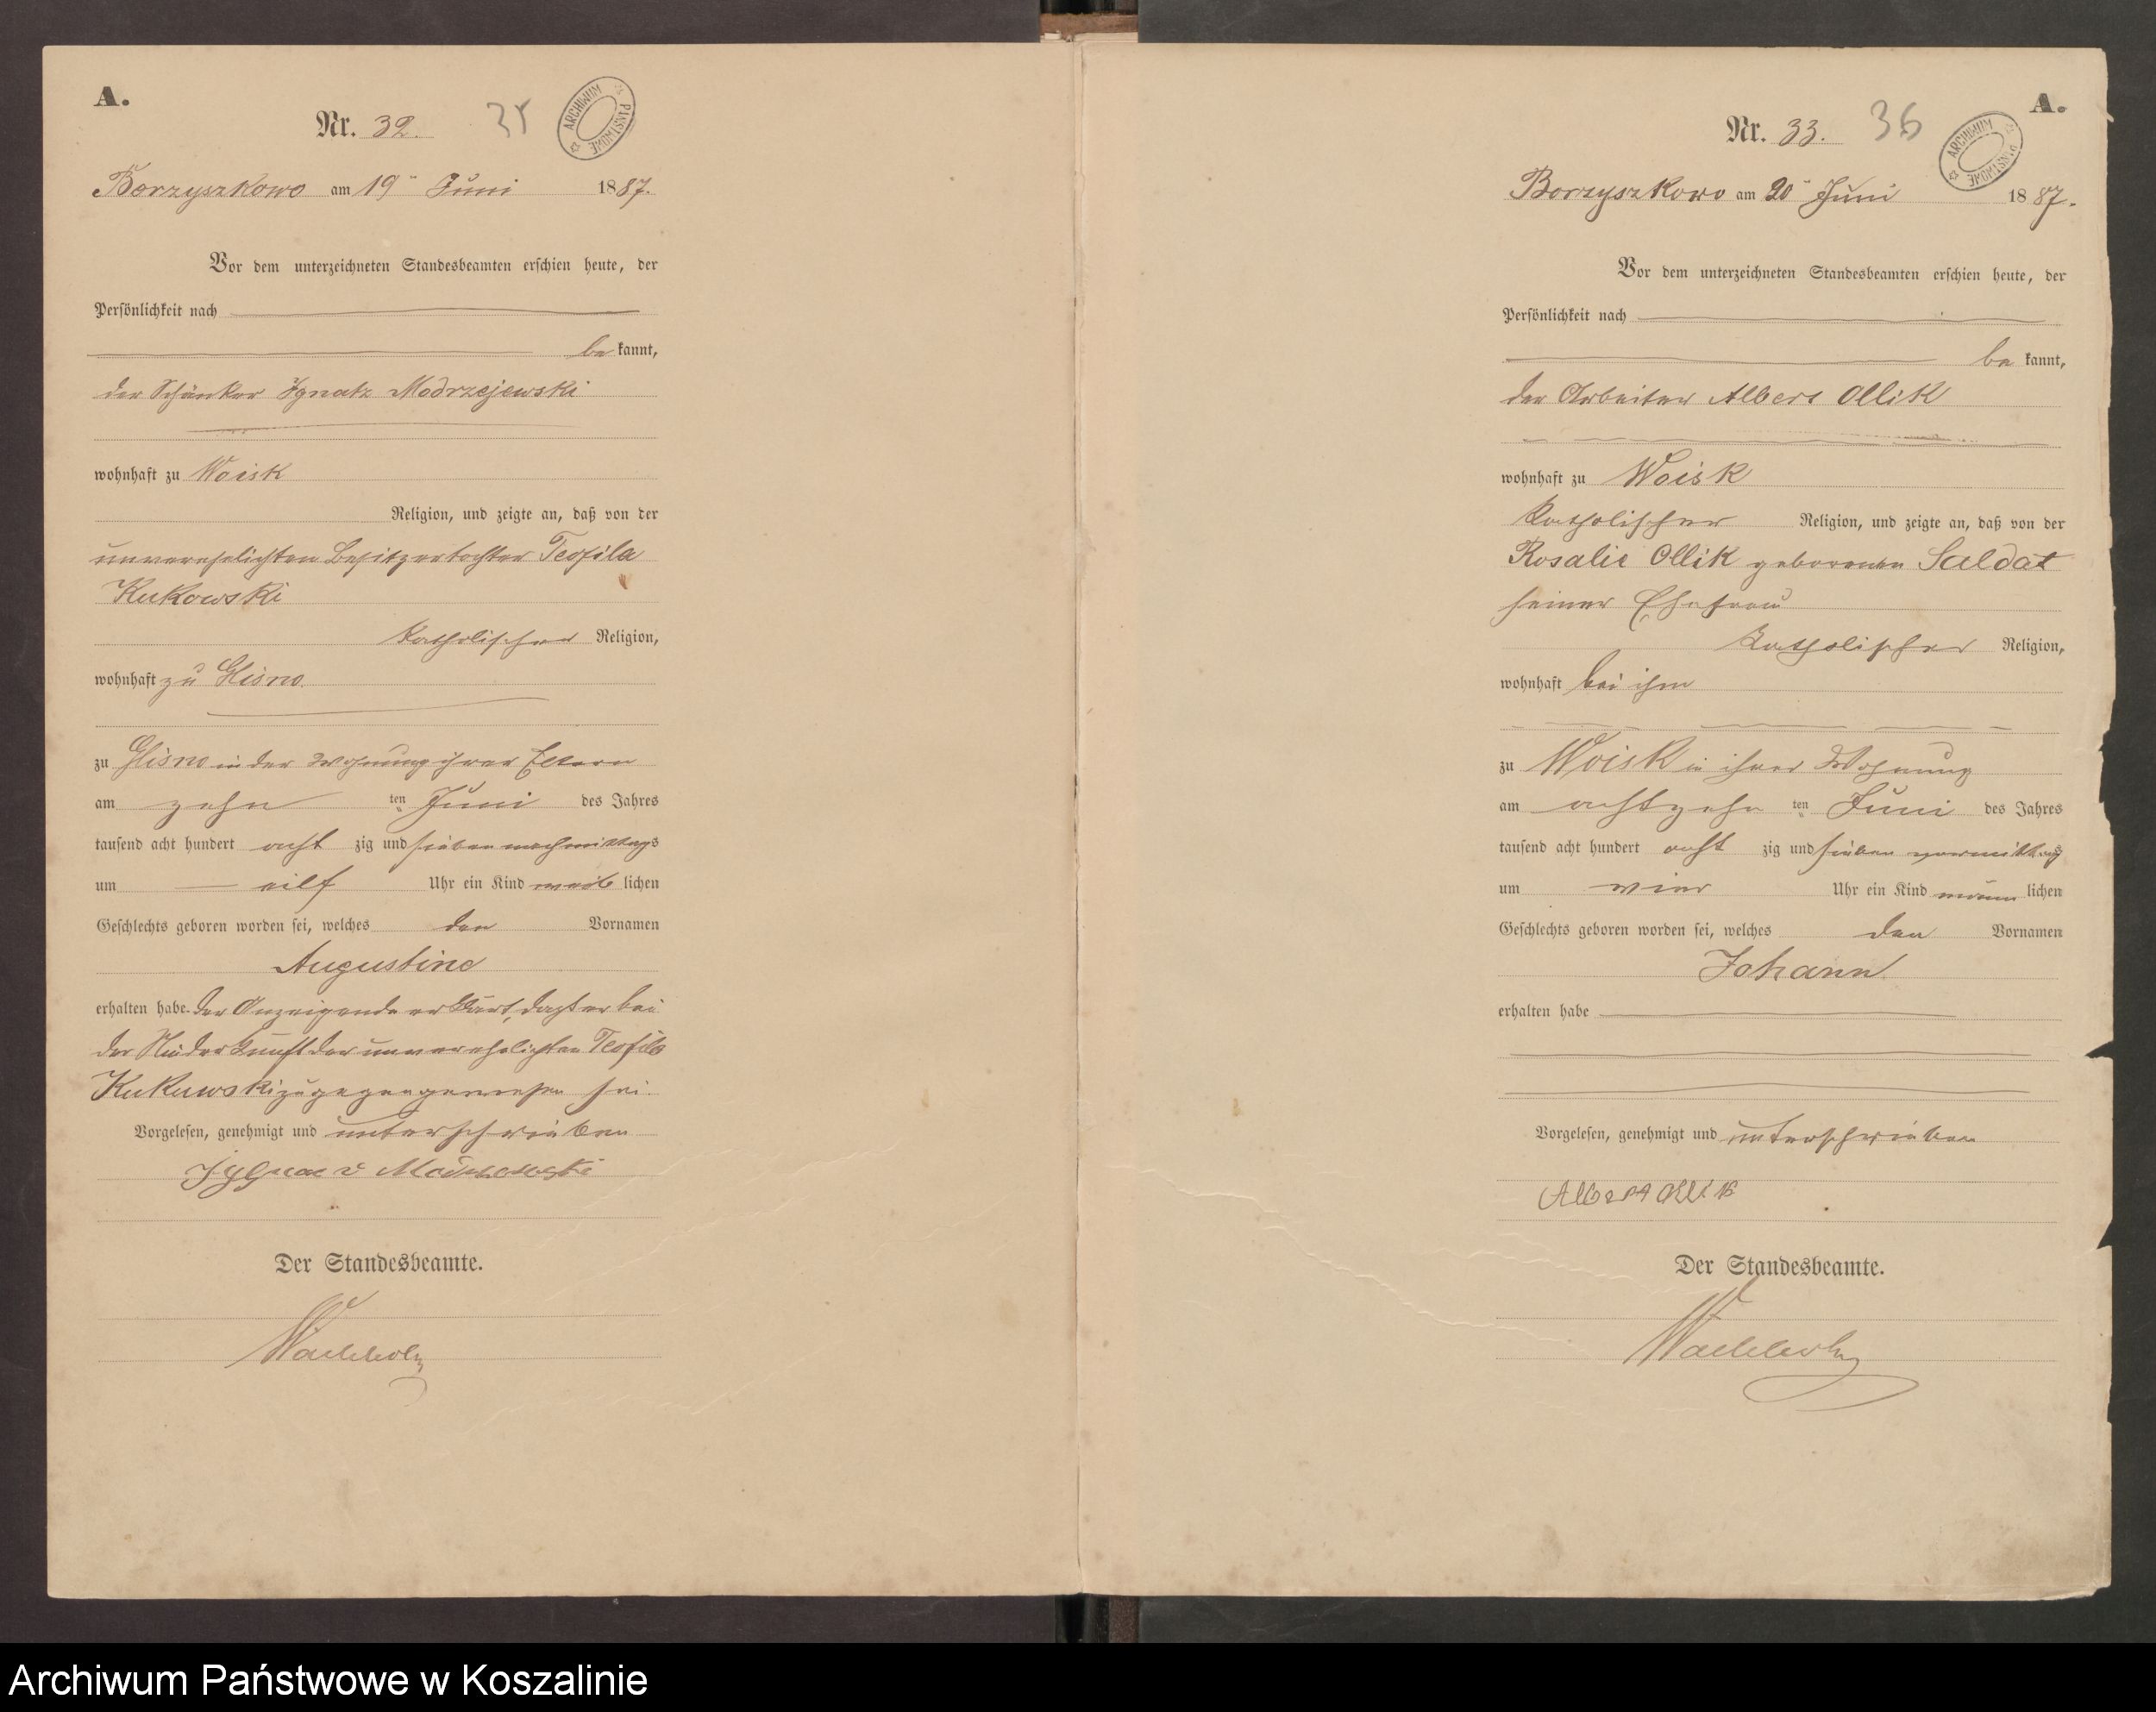 A.
Nr. 32. 35
ARCHIWUM PAŃSTWOWE
Borzyszkowo am 19ten Juni 1887.
Vor dem unterzeichneten Standesbeamten erschien heute, der
Persönlichkeit nach
be kannt,
der Schänker Ignatz Modrzejewski
wohnhaft zu Woisk
Religion, und zeigte an, daß von der
unverehelichten Besitzertochter Teofila
Kukowski
katholischer Religion,
wohnhaft zu Glisno
zu Glisno in der Wohnung ihrer Eltern
am zehn ten Juni des Jahres
tausend acht hundert acht zig und sieben nachmittags
um eilf Uhr ein Kind weib lichen
Geschlechts geboren worden sei, welches den Vornamen
Augustine
erhalten habe. Der Anzeigende erklärt, daß er bei
der Niederkunft der unverehelichten Teofila
Kukowski zugegen gewesen sei.
Vorgelesen, genehmigt und unterschrieben
Der Standesbeamte.
Wachholz
A.
Nr. 33. 36
ARCHIWUM PAŃSTWOWE
Borzyszkowo am 20ten Juni 1887.
Vor dem unterzeichneten Standesbeamten erschien heute, der
Persönlichkeit nach
be kannt,
der Arbeiter Albert Ollik
wohnhaft zu Woisk
katholischer Religion, und zeigte an, daß von der
Rosalie Ollik geborenen Saldat
seiner Ehefrau
katholischer Religion,
wohnhaft bei ihm
zu Woisk in ihrer Wohnung
am achtzehn ten Juni des Jahres
tausend acht hundert acht zig und sieben vormittags
um vier Uhr ein Kind männ lichen
Geschlechts geboren worden sei, welches den Vornamen
Johann
erhalten habe
Vorgelesen, genehmigt und unterschrieben
Albert Ollik
Der Standesbeamte.
Wachholz
Archiwum Państwowe w Koszalinie